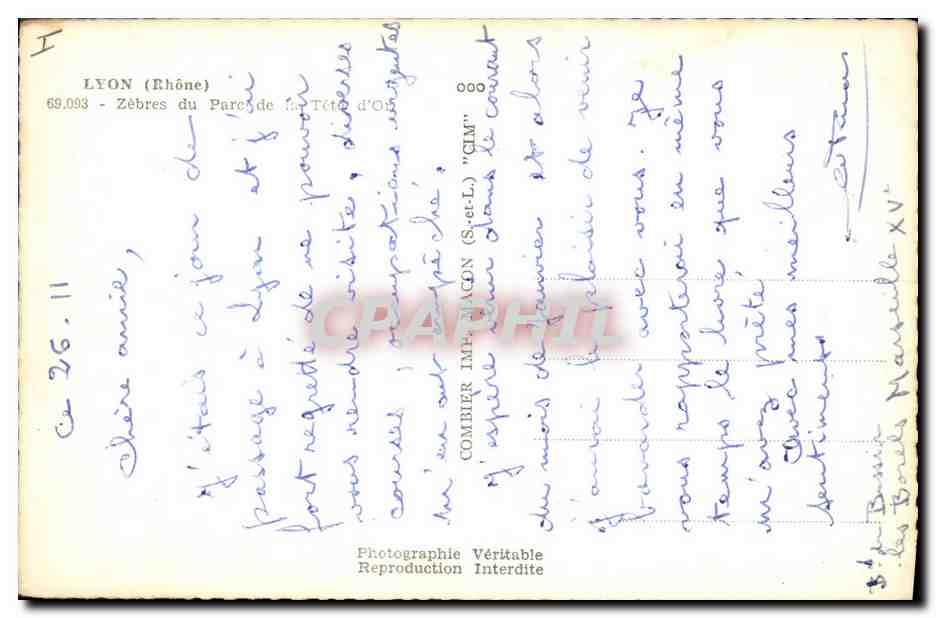 LYON (Rhône)
69.093 - Zèbres du Parc de la Tête d'Or
ooo
COMBIER IMP. MACON (S.-et-L.) "CIM"
Photographie Véritable
Reproduction Interdite
CPAPHIL
Ce 26.11
Chère amie,
J'étais ce jour de
passage à Lyon et j'ai
fort regretté de ne pouvoir
vous rendre visite, diverses
courses, occupations urgentes
m'en ont empêché.
J'espère venir dans le courant
du mois de janvier et alors
j'aurai le plaisir de venir
bavarder avec vous. Je
vous rapporterai en même
temps le livre que vous
m'avez prêté
Avec mes meilleurs
sentiments
Bd du Bassin
les Borels Marseille XVe